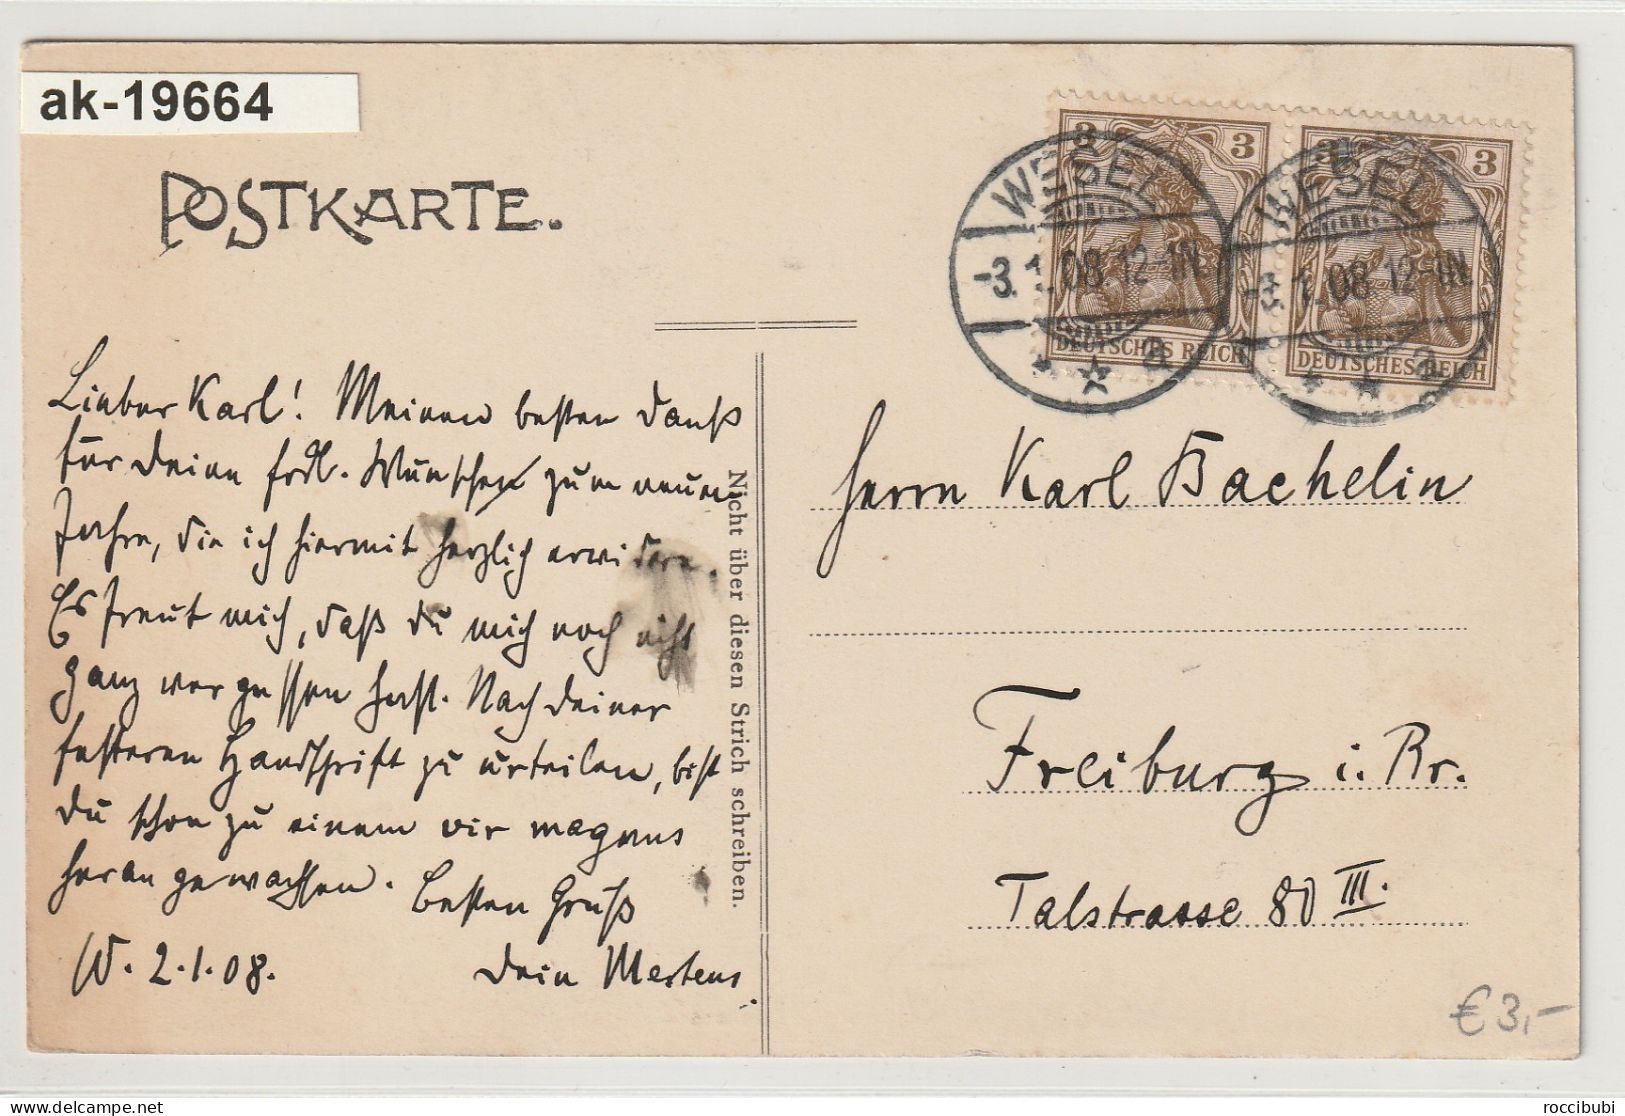 ak-19664
POSTKARTE.
3 3
3 3
DEUTSCHES REICH
DEUTSCHES REICH
WESEL
-3.1.08.12-1N.
* * a
WESEL
-3.1.08.12-1N.
* * a
Lieber Karl! Meinen besten Dank
für Deine frdl. Wünsche zum neuen
Jahre, die ich hiermit herzlich erwidere.
Es freut mich, daß Du mich noch nicht
ganz vergessen hast. Nach Deiner
festeren Handschrift zu urteilen, bist
Du schon zu einem
heran gewachsen. Besten Gruß
W. 2.1.08. Dein Mertens.
Nicht über diesen Strich schreiben.
Herrn Karl Bachelin
Freiburg i. Br.
Talstrasse 80 III.
€ 3,-
roccibubi